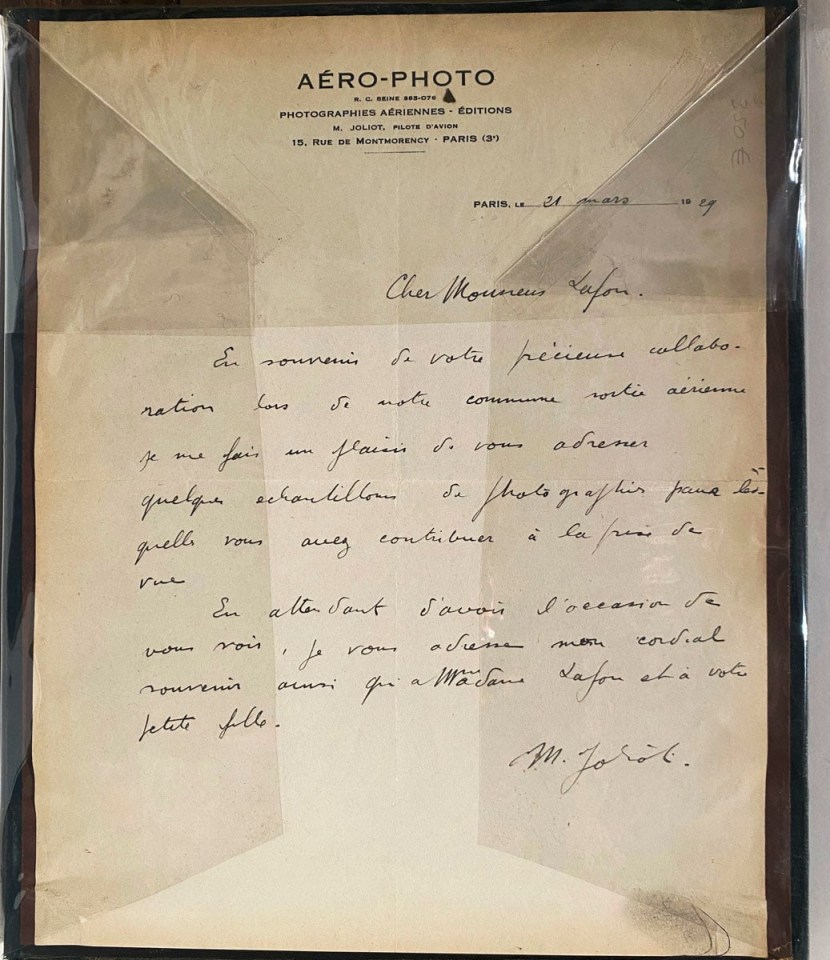 AÉRO-PHOTO
R. C. SEINE 585-076
PHOTOGRAPHIES AÉRIENNES - ÉDITIONS
M. JOLIOT, PILOTE D'AVION
15, RUE DE MONTMORENCY - PARIS (3ᵉ)
350 €
PARIS, LE 21 mars 1929
Cher Monsieur Lafon.
En souvenir de votre précieuse collabo-
ration lors de notre commune sortie aérienne
je me fais un plaisir de vous adresser
quelques echantillons de photographies pour les-
quelle vous avez contribuer à la prise de
vue
En attendant d'avoir l'occasion de
vous voir, je vous adresse mon cordial
souvenir ainsi qu'a Madame Lafon et à votre
petite fille.
M. Joliot.